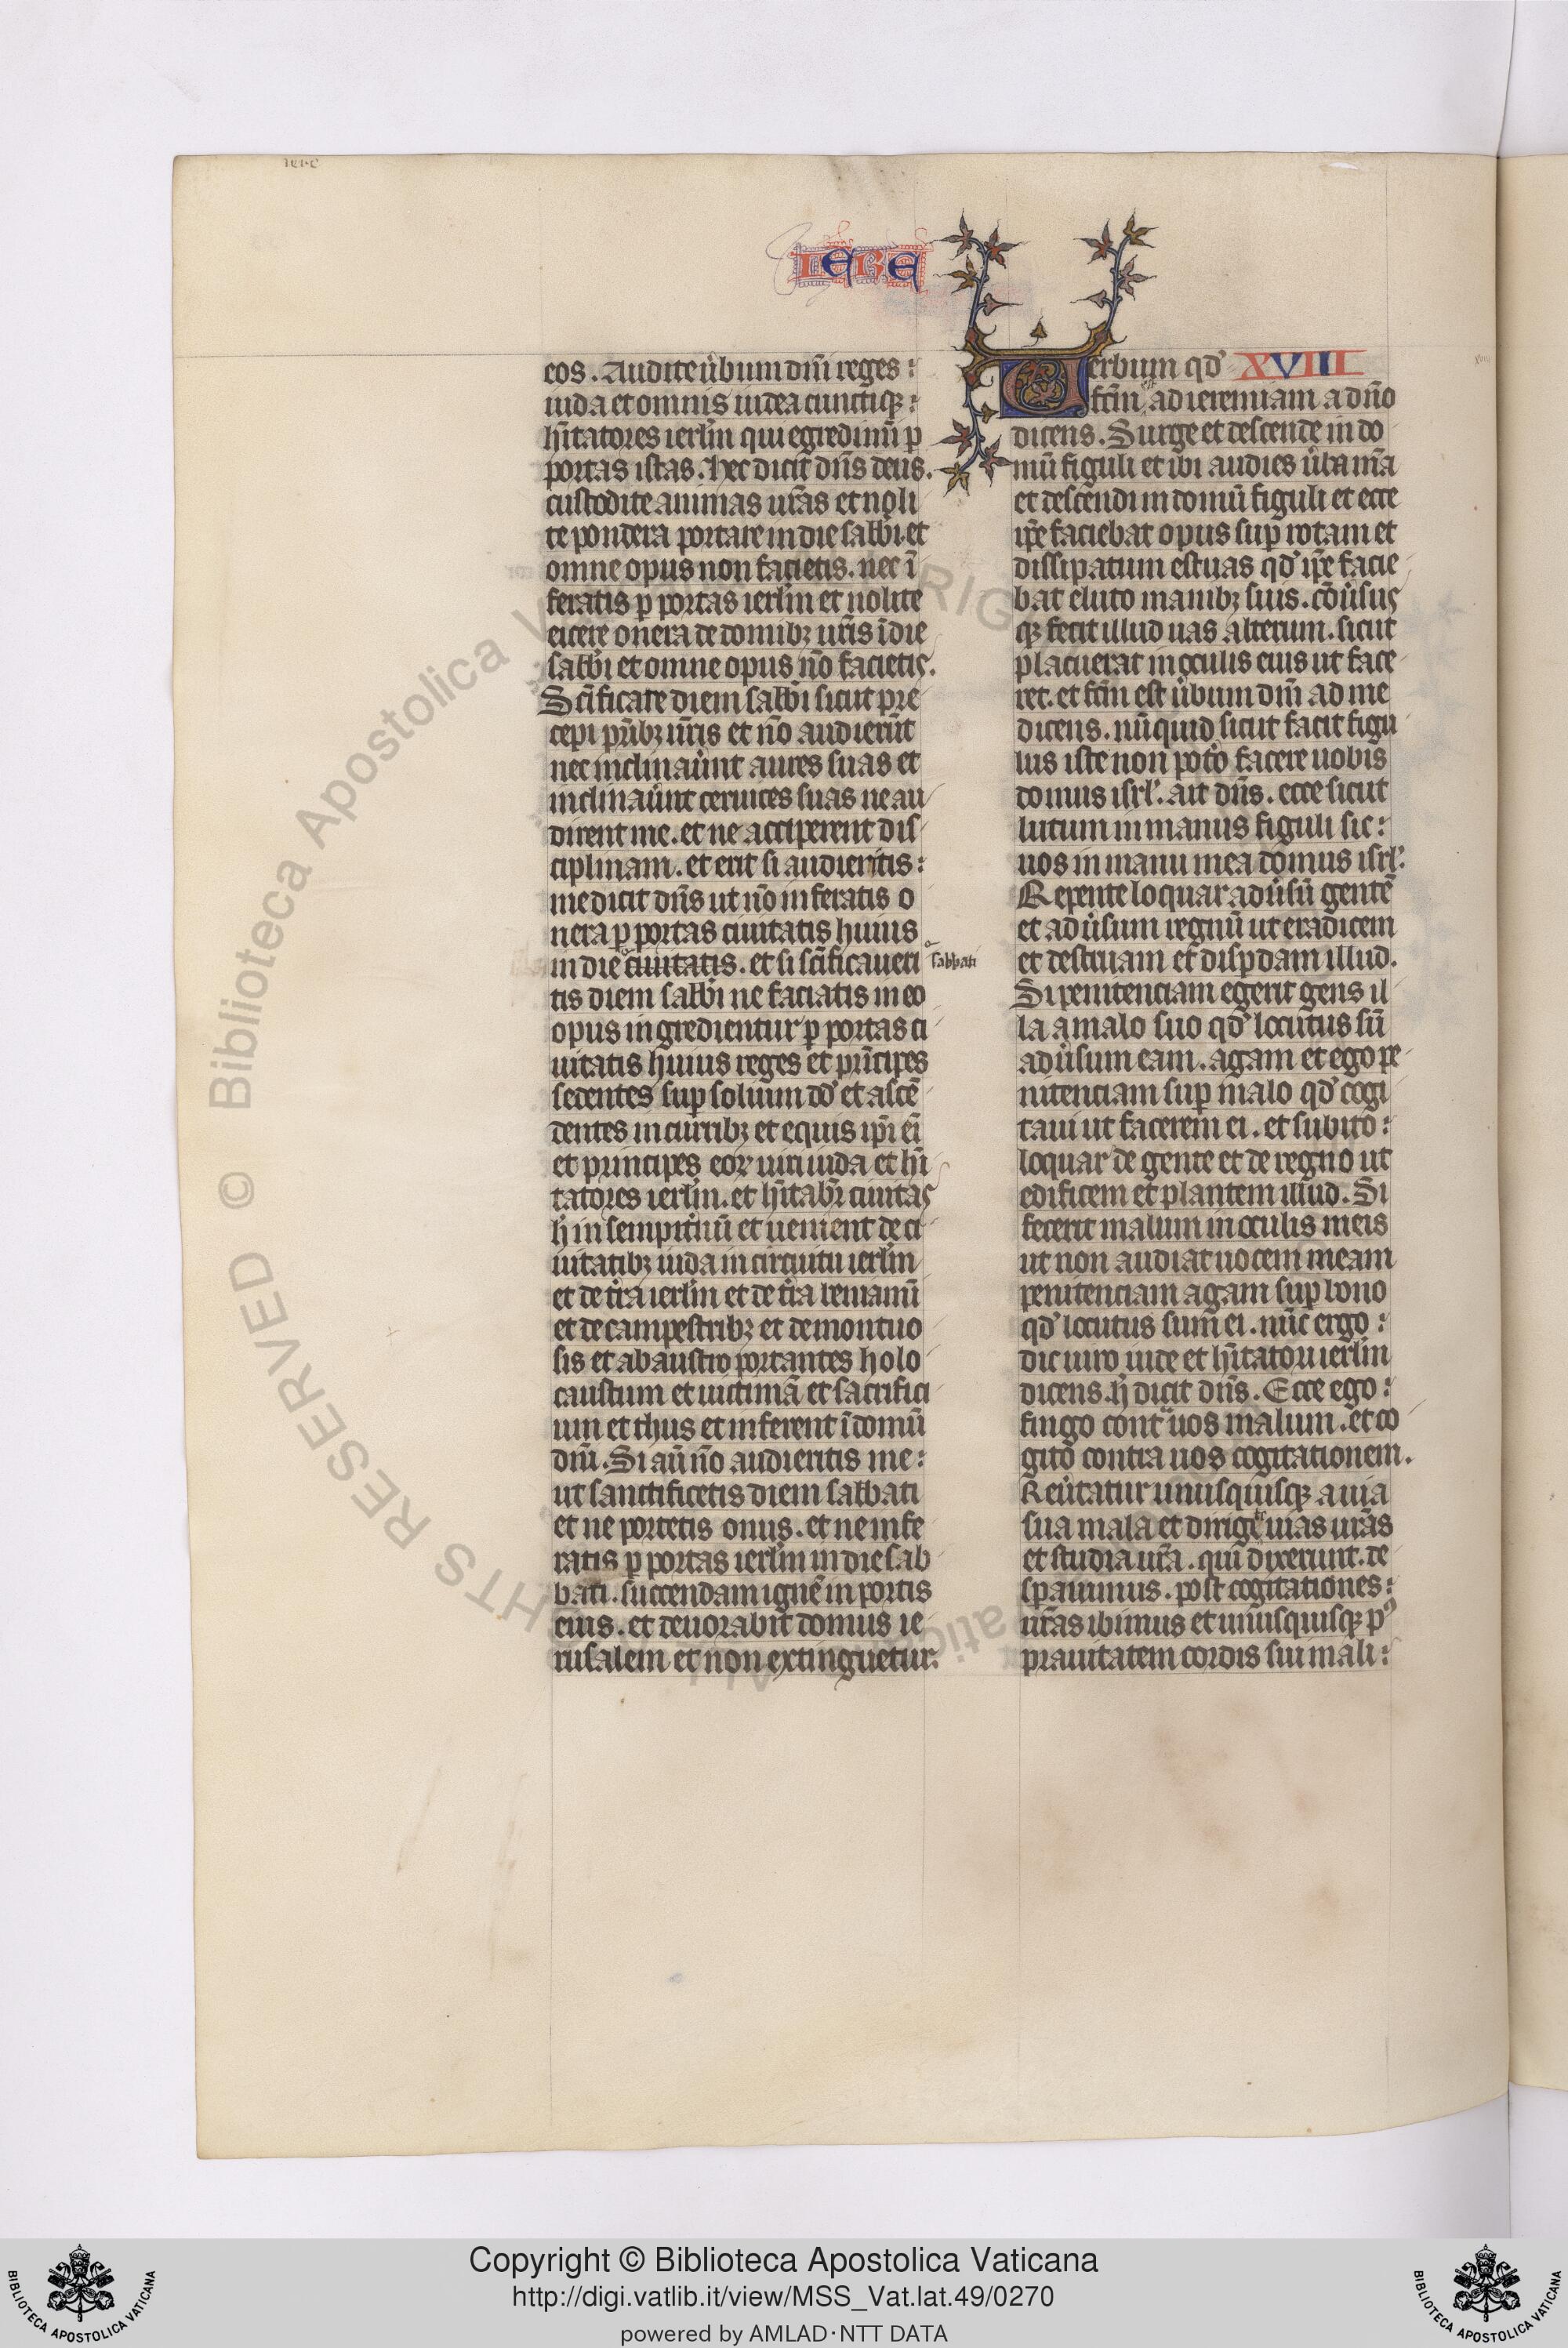 iere
IERE
eos. Audite ůbum dn̄i reges:
iuda et omnis iudea cunctiqꝫ:
hītatores ierlm̄ qui egredimī ꝑ
portas istas. hec dicit dn̄s deus.
custodite animas ur̄as et noli
te pondera portare in die sabb̄i. et
omne opus non facietis. nec ī
feratis ꝑ portas ierlm̄ et nolite
eicere onera de domibꝫ ur̄is ī die
sabb̄i et omne opus nō facietis.
Sc̄ificate diem sabb̄i sicut pre
cepi pr̄ibꝫ ur̄is et nō audierūt
nec inclinaůnt aures suas et
inclinaůnt ceruices suas ne au
dirent me. et ne acciperent dis
ciplinam. et erit si audieritis:
me dicit dn̄s ut nō inferatis o
nera ꝑ portas ciuitatis huius
in die ciuitatis. et si sc̄ificaueri
sabbati
tis diem sabb̄i ne faciatis in eo
opus ingredientur ꝑ portas ci
uitatis huius reges et prīcipes
sedentes suꝑ solium dd̄ et ascē
dentes in curribꝫ et equis ip̄i eī
et principes eoꝝ uiri iuda et hī
tatores ierlm̄. et hītabr̄ ciuitas
h̄ in sempit̄nū et uenient de ci
uitatibꝫ iuda in circuitu ierlm̄
et de t̄ra ierlm̄ et de t̄ra beniamī
et de campestribꝫ et de montuo
sis et ab austro portantes holo
caustum et uictimā et sacrifici
um et thus et inferent ī domū
dn̄i. Si aū nō audieritis me:
ut sanctificetis diem sabbati
et ne portetis onus. et ne infe
ratis ꝑ portas ierlm̄ in die sab
bati. succendam ignē in portis
eius. et deuorabit domus ie
rusalem et non extinguetur.
Uerbum qd̄ XVIII
fc̄m est ad ieremiam a dn̄o
dicens. Surge et descende in do
mū figuli et ibi audies ůba m̄a
et descendi in domū figuli et ecce
ip̄e faciebat opus suꝑ rotam et
dissipatum est uas qd̄ ip̄e facie
bat e luto manibꝫ suis. cōůsus
qꝫ fecit illud uas alterum. sicut
placuerat in oculis eius ut face
ret. et fc̄m est ůbum dn̄i ad me
dicens. nūquid sicut facit figu
lus iste non potȯ facere uobis
domus isrl̄. ait dn̄s. ecce sicut
lutum in manus figuli sic:
uos in manu mea domus isrl̄.
Repente loquar adůsū gentē
et adůsum regnū ut eradicem
et destruam et disꝑdam illud.
Si penitenciam egerit gens il
la a malo suo qd̄ locutus sū
adůsum eam. agam et ego pe
nitenciam suꝑ malo qd̄ cogi
taui ut facerem ei. et subito:
loquar de gente et de regno ut
edificem et plantem illud. Si
fecerit malum in oculis meis
ut non audiat uocem meam
penitenciam agam suꝑ bono
qd̄ locutus sum ei. nūc ergo:
dic uiro iude et hītatori ierlm̄
dicens. h̄ dicit dn̄s. Ecce ego:
fingo contᵃ uos malum. et co
gito contra uos cogitationem.
Reůtatur unusquisqꝫ a uia
sua mala et dirigite uias ur̄as
et studia ur̄a. qui dixerunt. de
sꝑauimus. post cogitationes:
ur̄as ibimus et unusquisqꝫ pꝰ
prauitatem cordis sui mali:
xviii
© Biblioteca Apostolica Vaticana
RIGHTS RESERVED
Copyright © Biblioteca Apostolica Vaticana
http://digi.vatlib.it/view/MSS_Vat.lat.49/0270
powered by AMLAD·NTT DATA
BIBLIOTECA APOSTOLICA VATICANA
BIBLIOTECA APOSTOLICA VATICANA